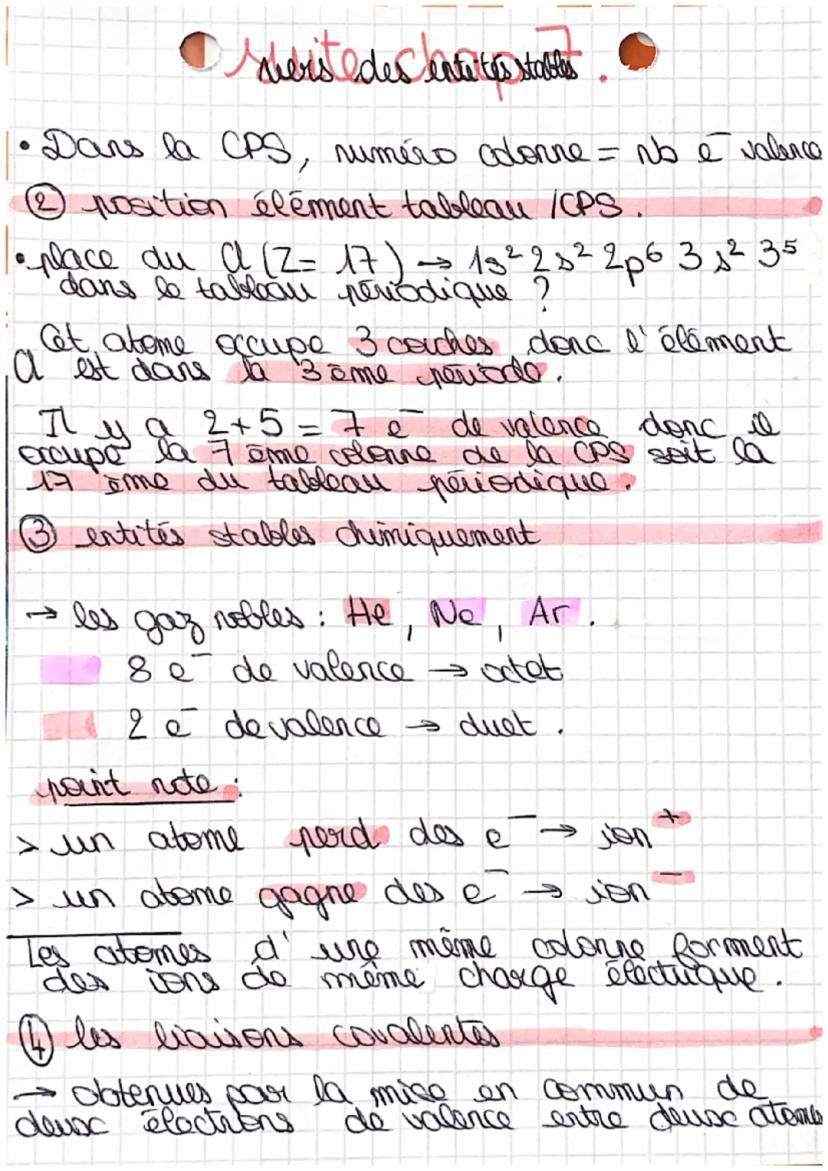 suite chap 7.
vers des entités stables
• Dans la CPS, numéro colonne = nb e⁻ valence
② position élément tableau /CPS.
• place du Cl (Z= 17) → 1s² 2s² 2p⁶ 3s² 3⁵
dans le tableau périodique ?
Cet atome occupe 3 couches donc l'élément
Cl est dans la 3ème période.
Il y a 2+5 = 7 e⁻ de valence donc il
occupe la 7ème colonne de la CPS soit la
17ème du tableau périodique.
③ entités stables chimiquement
→ les gaz nobles : He, Ne, Ar.
8 e⁻ de valence → octet
2 e⁻ de valence → duet.
point note :
> un atome perd des e⁻ → ion⁺
> un atome gagne des e⁻ → ion⁻
Les atomes d'une même colonne forment
des ions de même charge électrique.
④ les liaisons covalentes
→ obtenues par la mise en commun de
deux électrons de valence entre deux atomes